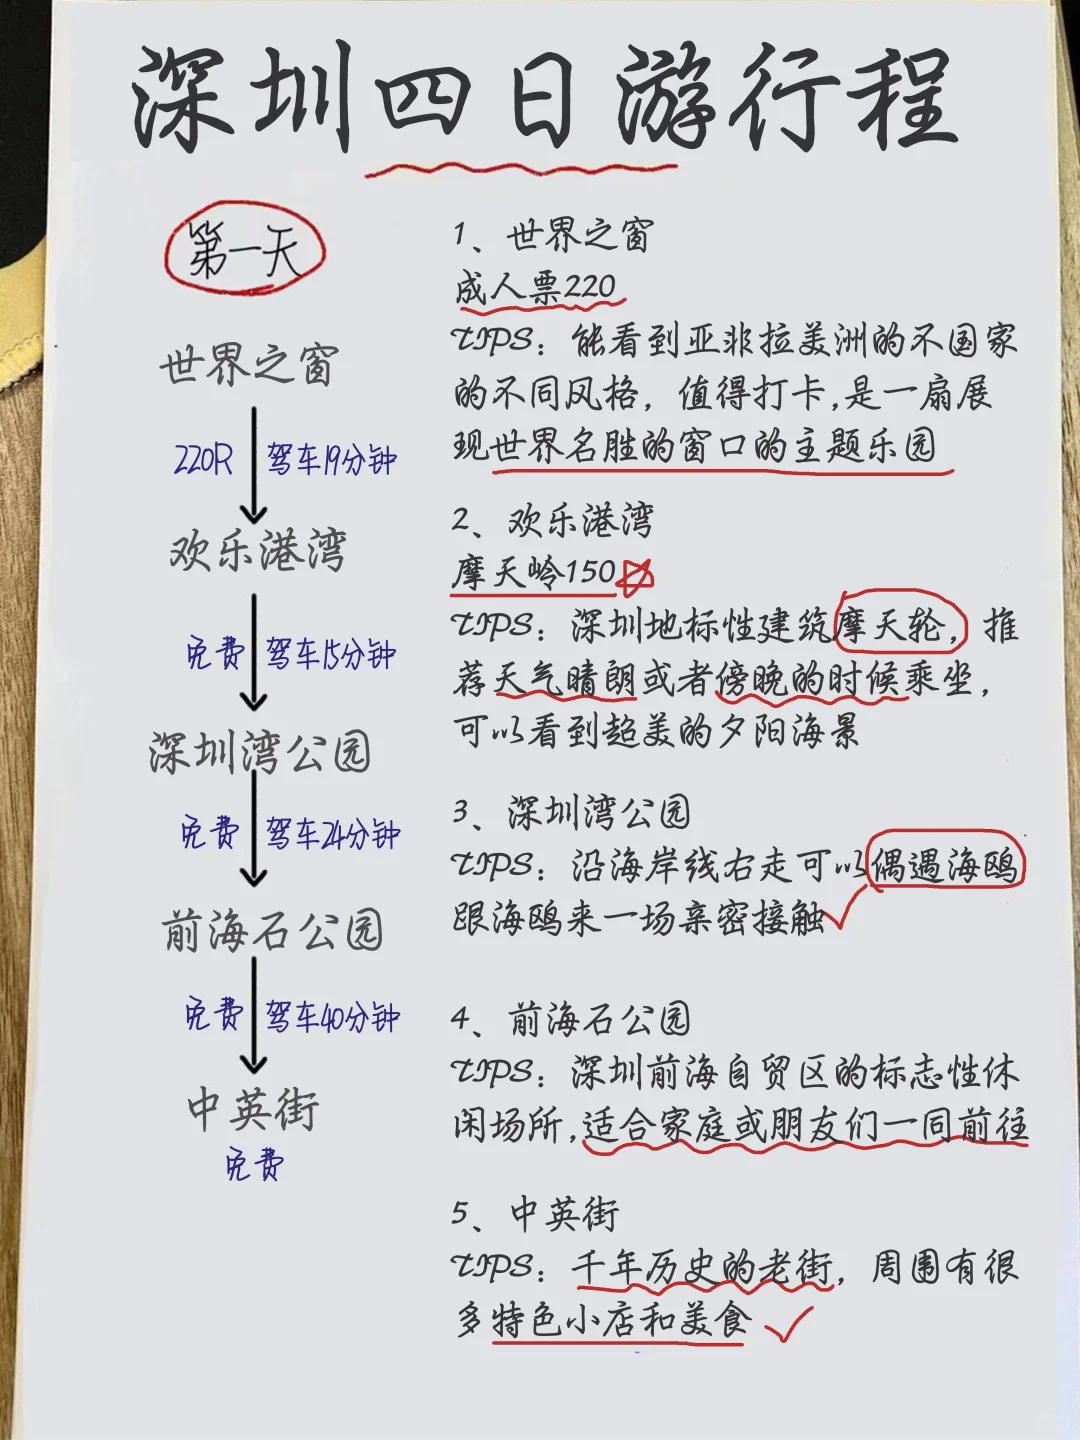 深圳四日游行程
第一天
世界之窗
220R 驾车19分钟
欢乐港湾
免费 驾车15分钟
深圳湾公园
免费 驾车24分钟
前海石公园
免费 驾车40分钟
中英街
免费
1、世界之窗
成人票220
TIPS：能看到亚非拉美洲的不国家
的不同风格，值得打卡,是一扇展
现世界名胜的窗口的主题乐园
2、欢乐港湾
摩天岭150
TIPS：深圳地标性建筑摩天轮，推
荐天气晴朗或者傍晚的时候乘坐，
可以看到超美的夕阳海景
3、深圳湾公园
TIPS：沿海岸线右走可以偶遇海鸥
跟海鸥来一场亲密接触
4、前海石公园
TIPS：深圳前海自贸区的标志性休
闲场所,适合家庭或朋友们一同前往
5、中英街
TIPS：千年历史的老街，周围有很
多特色小店和美食